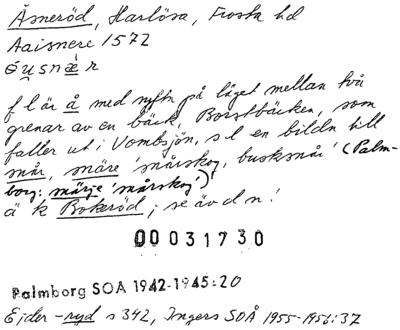 Åsneröd, Harlösa, Frosta hd
Aaisnere 1572
ɷ́u̬snæ̀r
f l är å med syftn på läget mellan två
grenar av en bäck, Borstbäcken, som
faller ut i Vombsjön, s l en bildn till
snår, snäre 'snårskog, busksnår' (Palm-
borg: snärje 'snårskog')
ä k Bokeröd; se äv d n!
00031730
Palmborg SOA 1942-1945:20
Ejder -ryd s 342, Ingers SOÅ 1955-1956:37